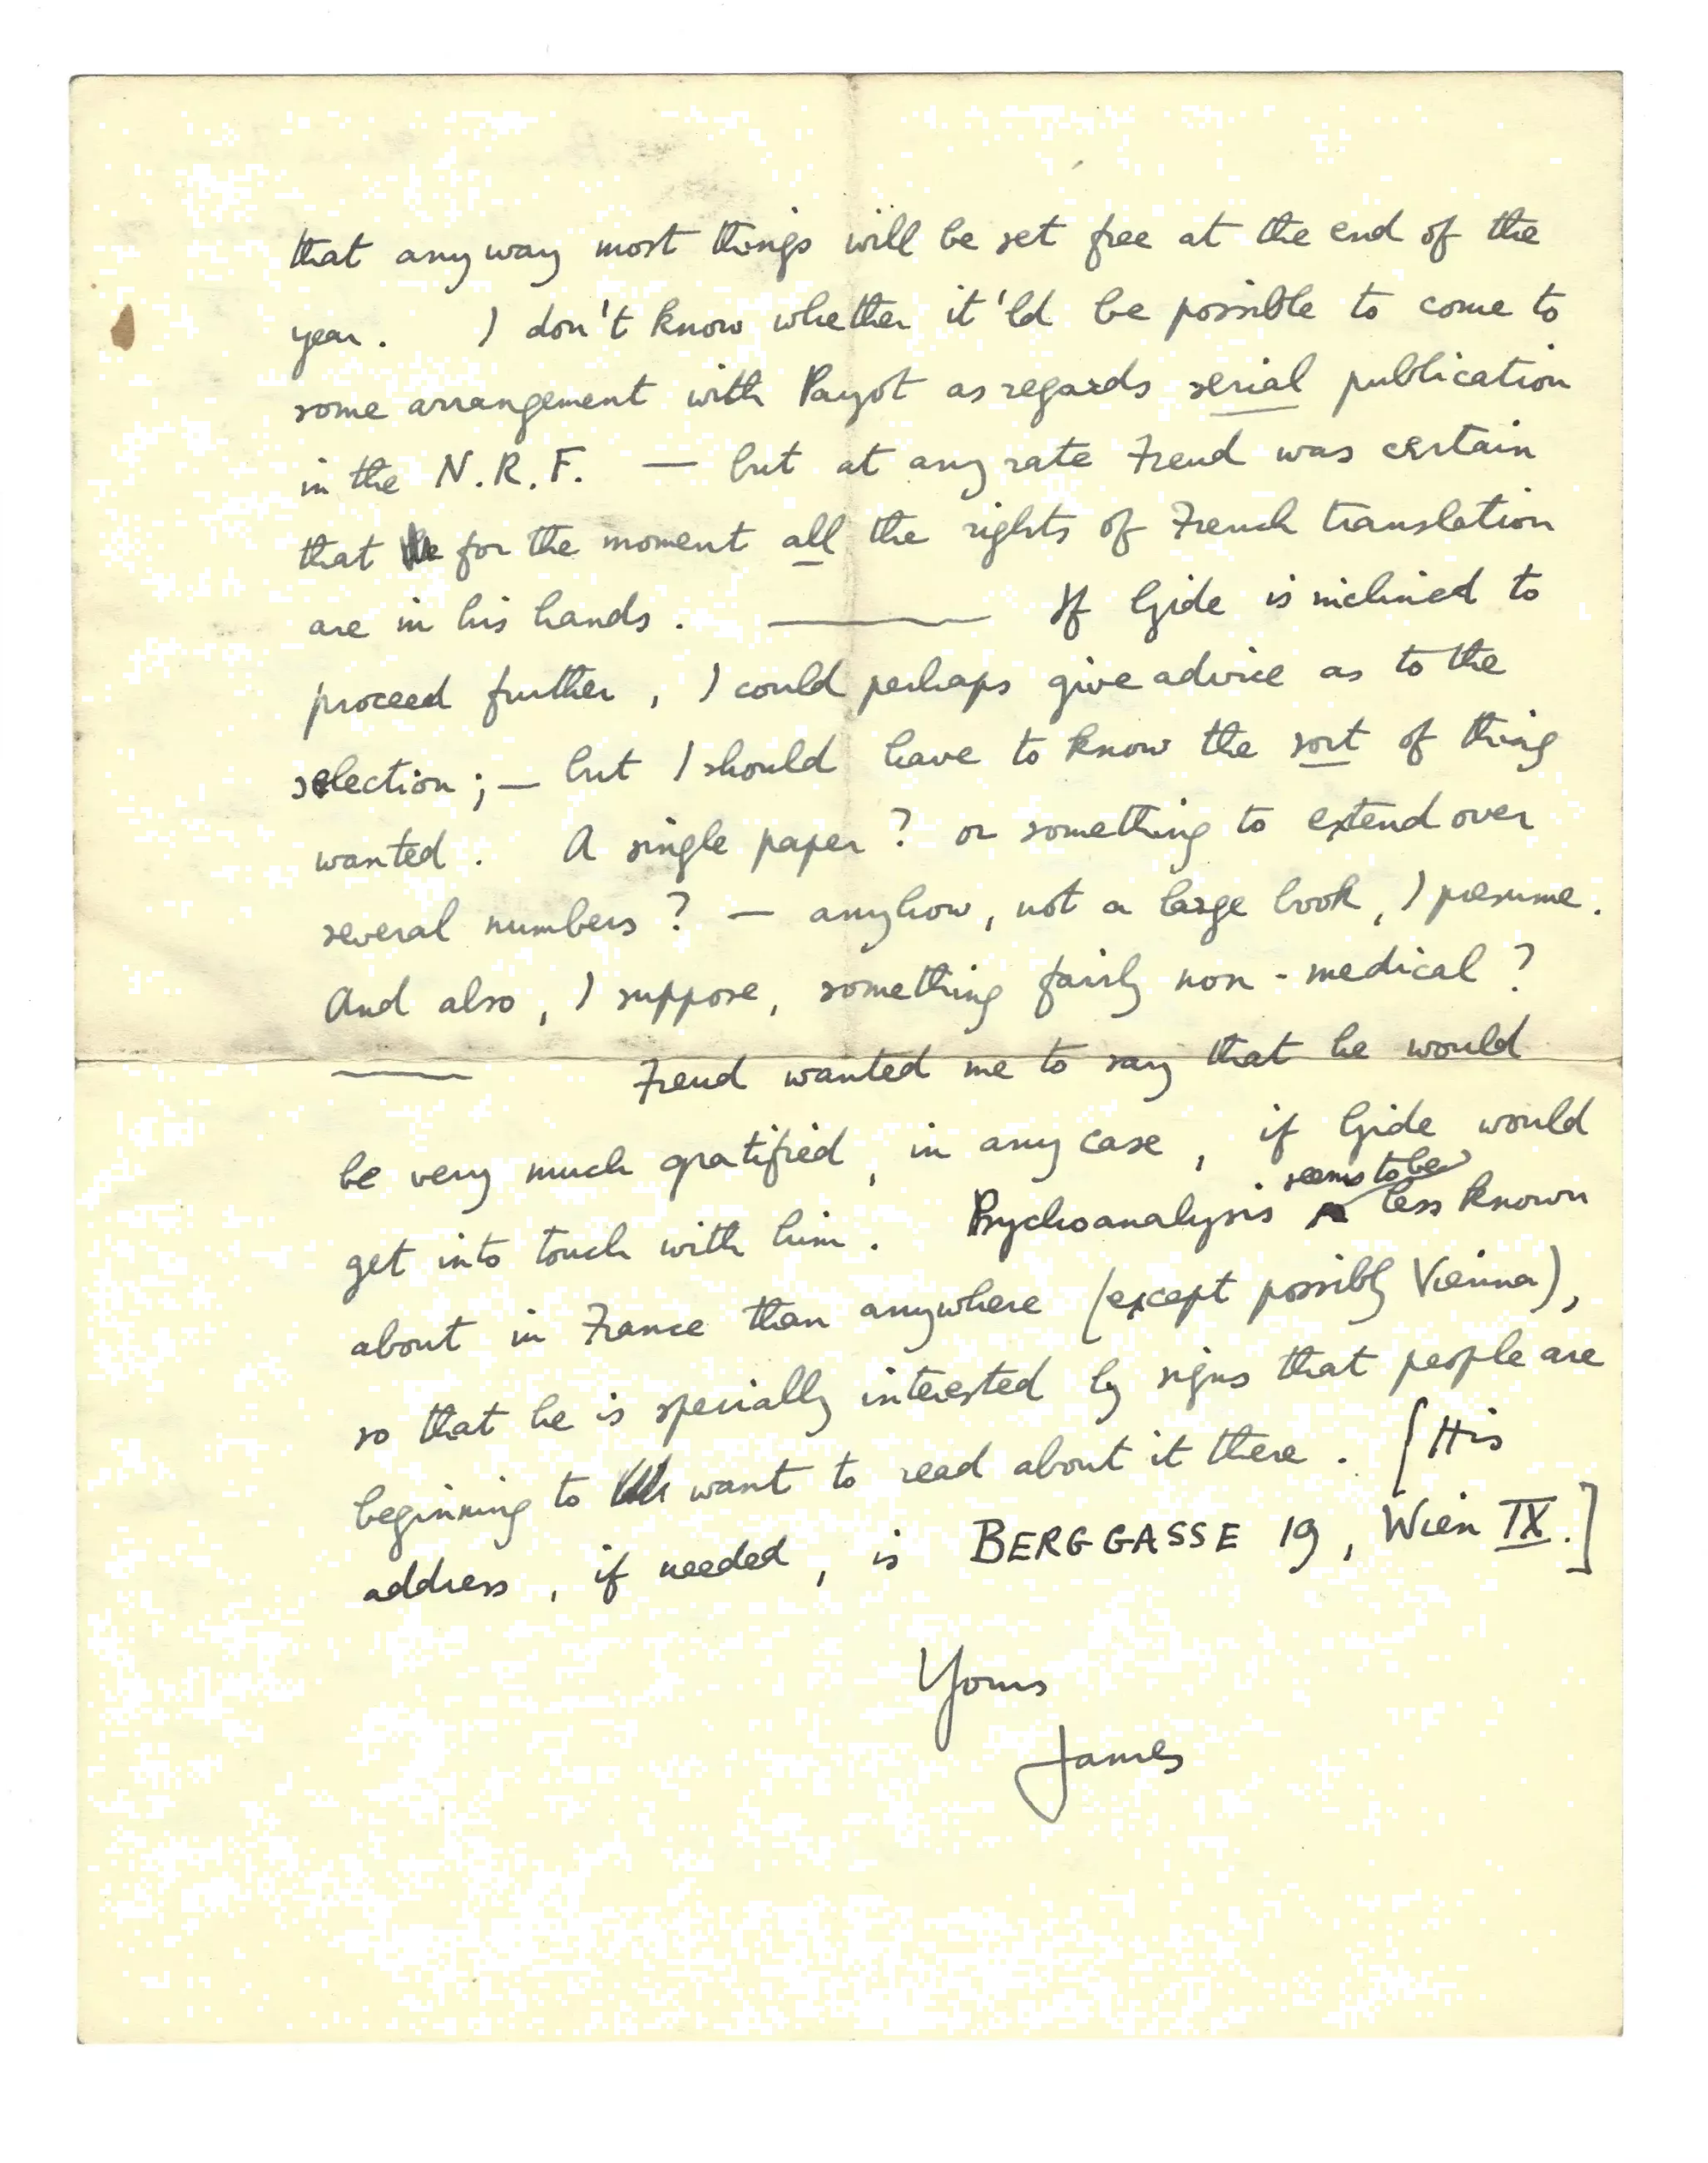 that any way most things will be set free at the end of the
year. I don't know whether it'ld be possible to come to
some arrangement with Payot as regards serial publication
in the N.R.F. — but at any rate Freud was certain
that for the moment all the rights of French translation
are in his hands. ——— If Gide is inclined to
proceed further, I could perhaps give advice as to the
selection; — but I should have to know the sort of thing
wanted. A single paper? or something to extend over
several numbers? — anyhow, not a large book, I presume.
And also, I suppose, something fairly non-medical?
——— Freud wanted me to say that he would
be very much gratified, in any case, if Gide would
get into touch with him. Psychoanalysis seems to be less known
about in France than anywhere (except possibly Vienna),
so that he is specially interested by signs that people are
beginning to want to read about it there. [His
address, if needed, is BERGGASSE 19, Wien IX.]
Yours
James